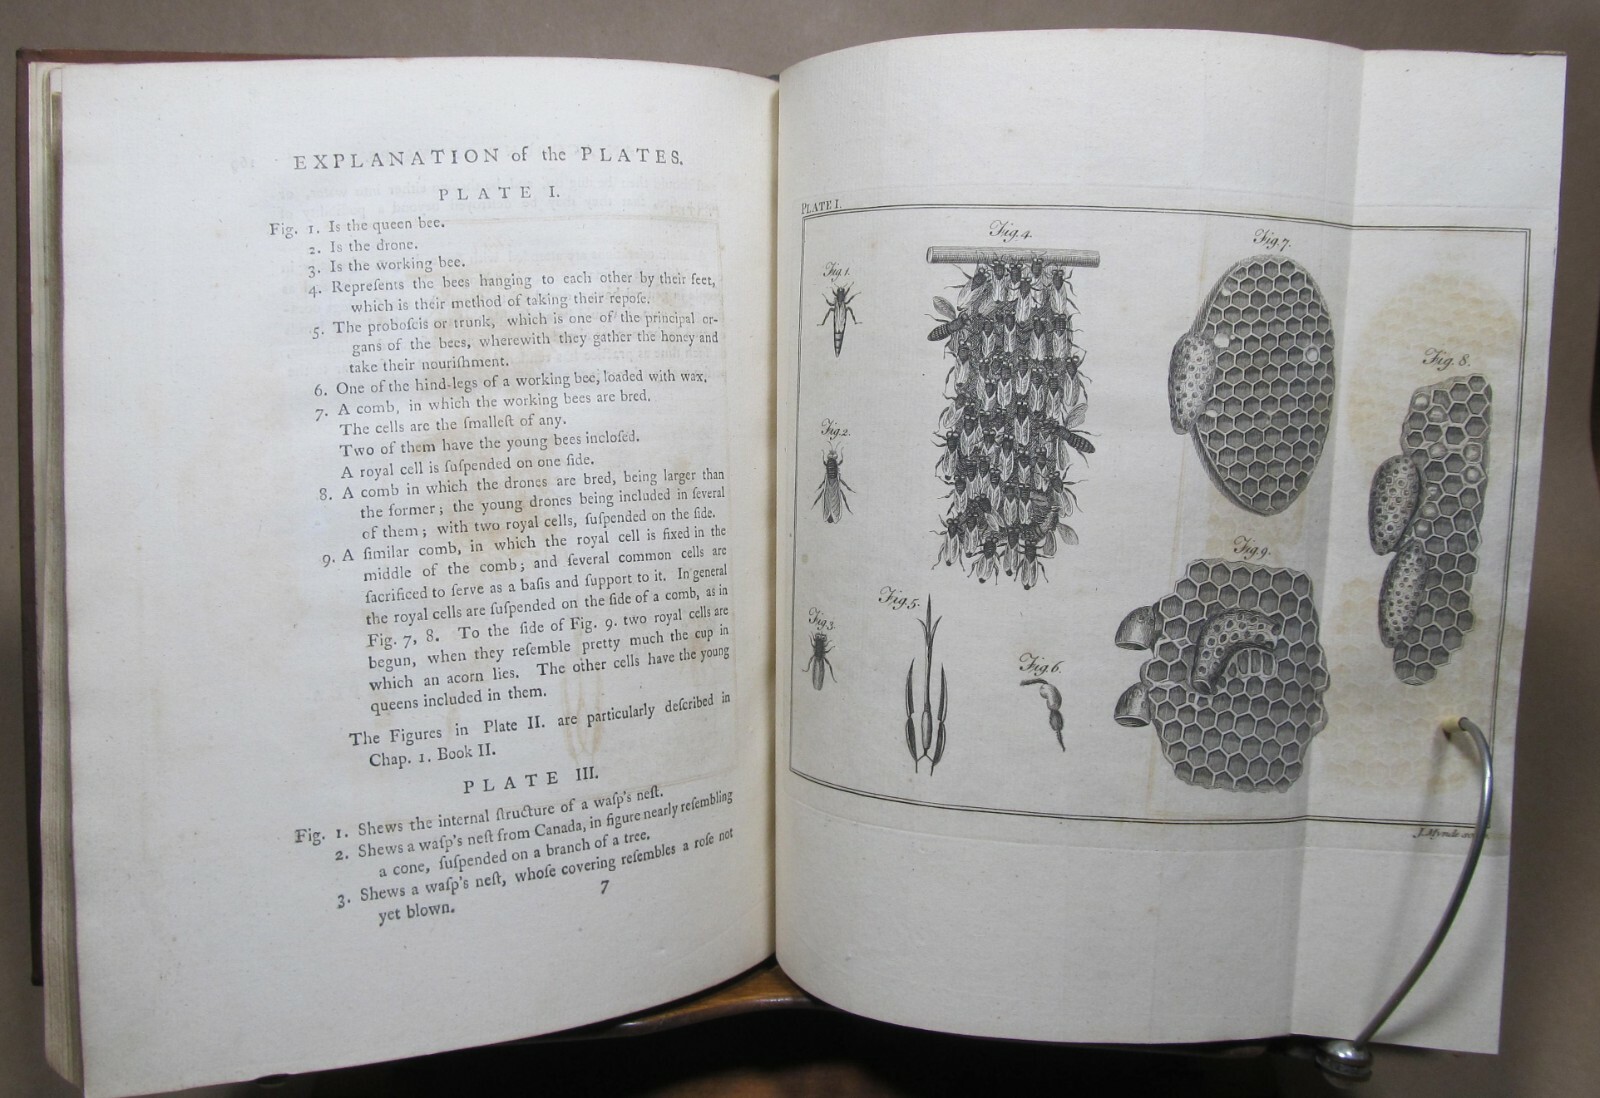 EXPLANATION of the PLATES.
PLATE I.
Fig. 1. Is the queen bee.
2. Is the drone.
3. Is the working bee.
4. Repreſents the bees hanging to each other by their feet,
which is their method of taking their repoſe.
5. The proboſcis or trunk, which is one of the principal or-
gans of the bees, wherewith they gather the honey and
take their nouriſhment.
6. One of the hind-legs of a working bee, loaded with wax.
7. A comb, in which the working bees are bred.
The cells are the ſmalleſt of any.
Two of them have the young bees incloſed.
A royal cell is ſuſpended on one ſide.
8. A comb in which the drones are bred, being larger than
the former; the young drones being included in ſeveral
of them; with two royal cells, ſuſpended on the ſide.
9. A ſimilar comb, in which the royal cell is fixed in the
middle of the comb; and ſeveral common cells are
ſacrificed to ſerve as a baſis and ſupport to it. In general
the royal cells are ſuſpended on the ſide of a comb, as in
Fig. 7, 8. To the ſide of Fig. 9. two royal cells are
begun, when they reſemble pretty much the cup in
which an acorn lies. The other cells have the young
queens included in them.
The Figures in Plate II. are particularly deſcribed in
Chap. 1. Book II.
PLATE III.
Fig. 1. Shews the internal ſtructure of a waſp's neſt.
2. Shews a waſp's neſt from Canada, in figure nearly reſembling
a cone, ſuſpended on a branch of a tree.
3. Shews a waſp's neſt, whoſe covering reſembles a roſe not
yet blown.
7
PLATE I.
Fig. 1.
Fig. 2.
Fig. 3.
Fig. 4.
Fig. 5.
Fig. 6.
Fig. 7.
Fig. 8.
Fig. 9.
J. Mynde